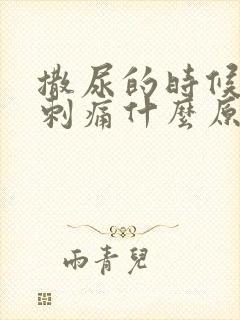 撒尿的時候
刺痛什麼原
雨青兒